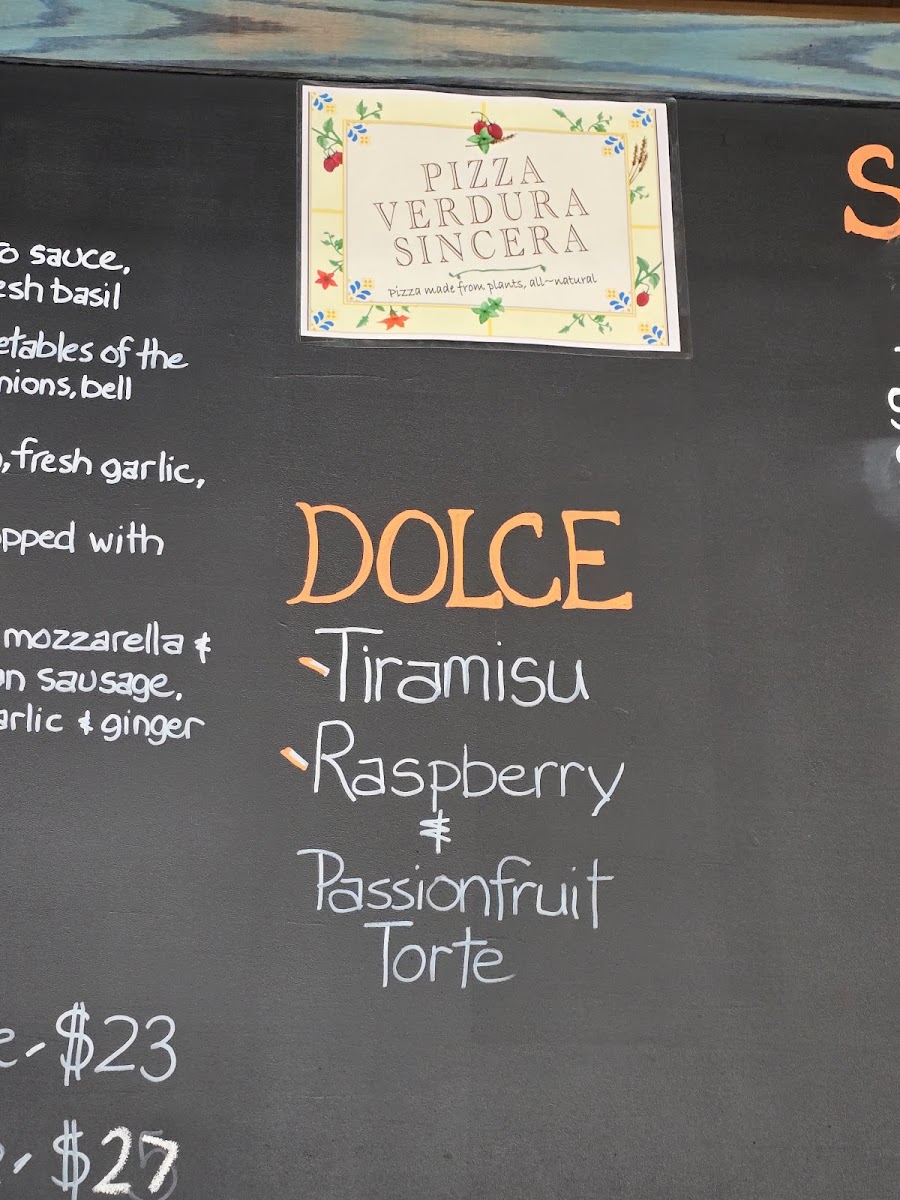 sauce,
basil
of the
bell
fresh garlic,
with
mozzarella &
sausage,
& ginger
$23
$27
PIZZA
VERDURA
SINCERA
pizza made from plants, all~natural
DOLCE
Tiramisu
Raspberry
&
Passionfruit
Torte